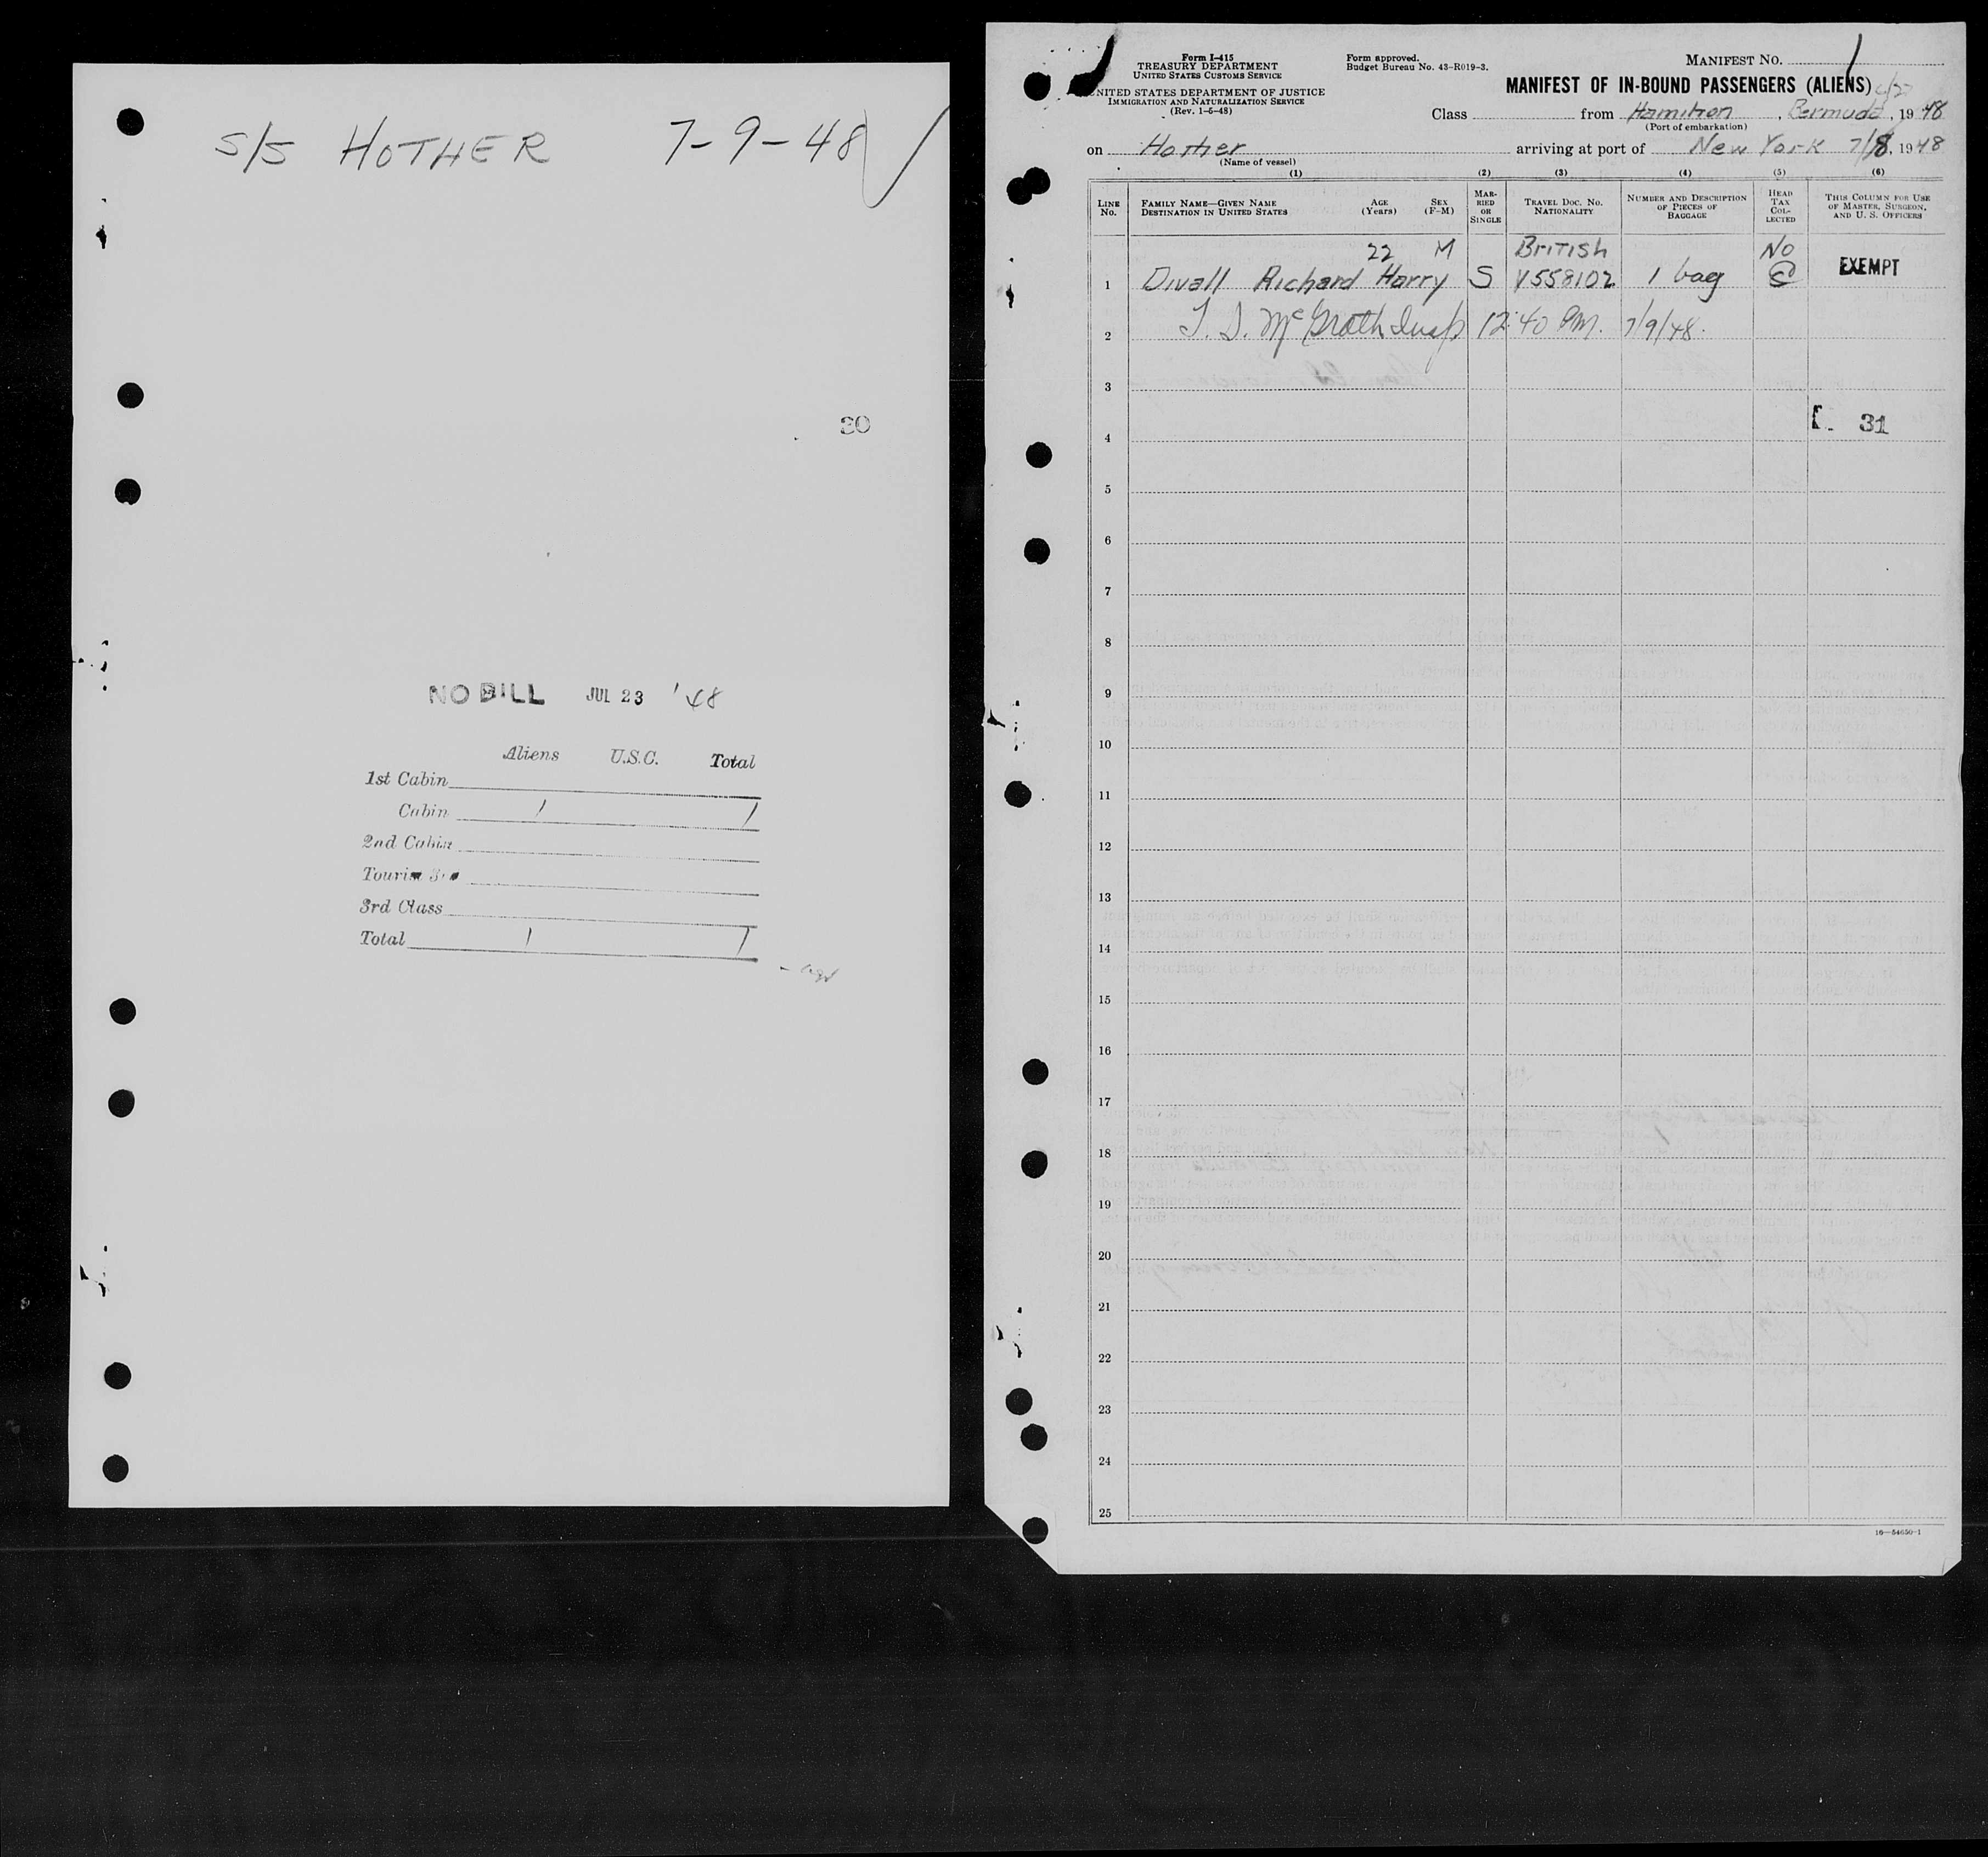 S/S HOTHER 7-9-48
30
NO BILL JUL 23 '48
Aliens U.S.C. Total
1st Cabin
Cabin 1 1
2nd Cabin
3rd Class
Total 1 1
Form I-415
TREASURY DEPARTMENT
UNITED STATES CUSTOMS SERVICE
UNITED STATES DEPARTMENT OF JUSTICE
IMMIGRATION AND NATURALIZATION SERVICE
(Rev. 1-5-48)
Form approved.
Budget Bureau No. 43-R019-3.
MANIFEST NO. 1
MANIFEST OF IN-BOUND PASSENGERS (ALIENS)
Class from Hamilton, Bermuda, 1948
(Port of embarkation)
on Hother arriving at port of New York 7/8, 1948
(Name of vessel)
(1) (2) (3) (4) (5) (6)
LINE No. FAMILY NAME—GIVEN NAME DESTINATION IN UNITED STATES AGE (Years) SEX (F-M) MARRIED OR SINGLE TRAVEL DOC. NO. NATIONALITY NUMBER AND DESCRIPTION OF PIECES OF BAGGAGE HEAD TAX COLLECTED THIS COLUMN FOR USE OF MASTER, SURGEON, AND U. S. OFFICERS
22 M British No
1 Divall Richard Harry S V558102 1 bag EXEMPT
2 T. J. McGrath Insp 12:40 PM. 7/9/48.
3
4 31
5
6
7
8
9
10
11
12
13
14
15
16
17
18
19
20
21
22
23
24
25
16—54650-1